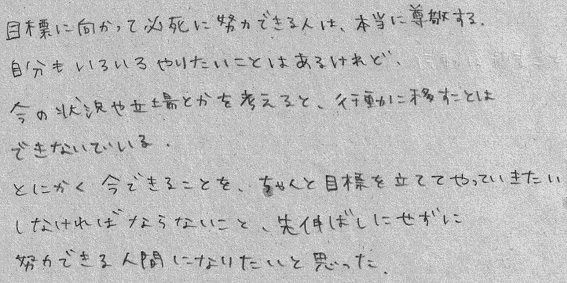 目標に向かって必死に努力できる人は、本当に尊敬する.
自分もいろいろやりたいことはあるけれど、
今の状況や立場とかを考えると、行動に移すことは
できないでいる.
とにかく今できることを、ちゃんと目標を立ててやっていきたい
しなければならないこと、先伸ばしにせずに
努力できる人間になりたいと思った.